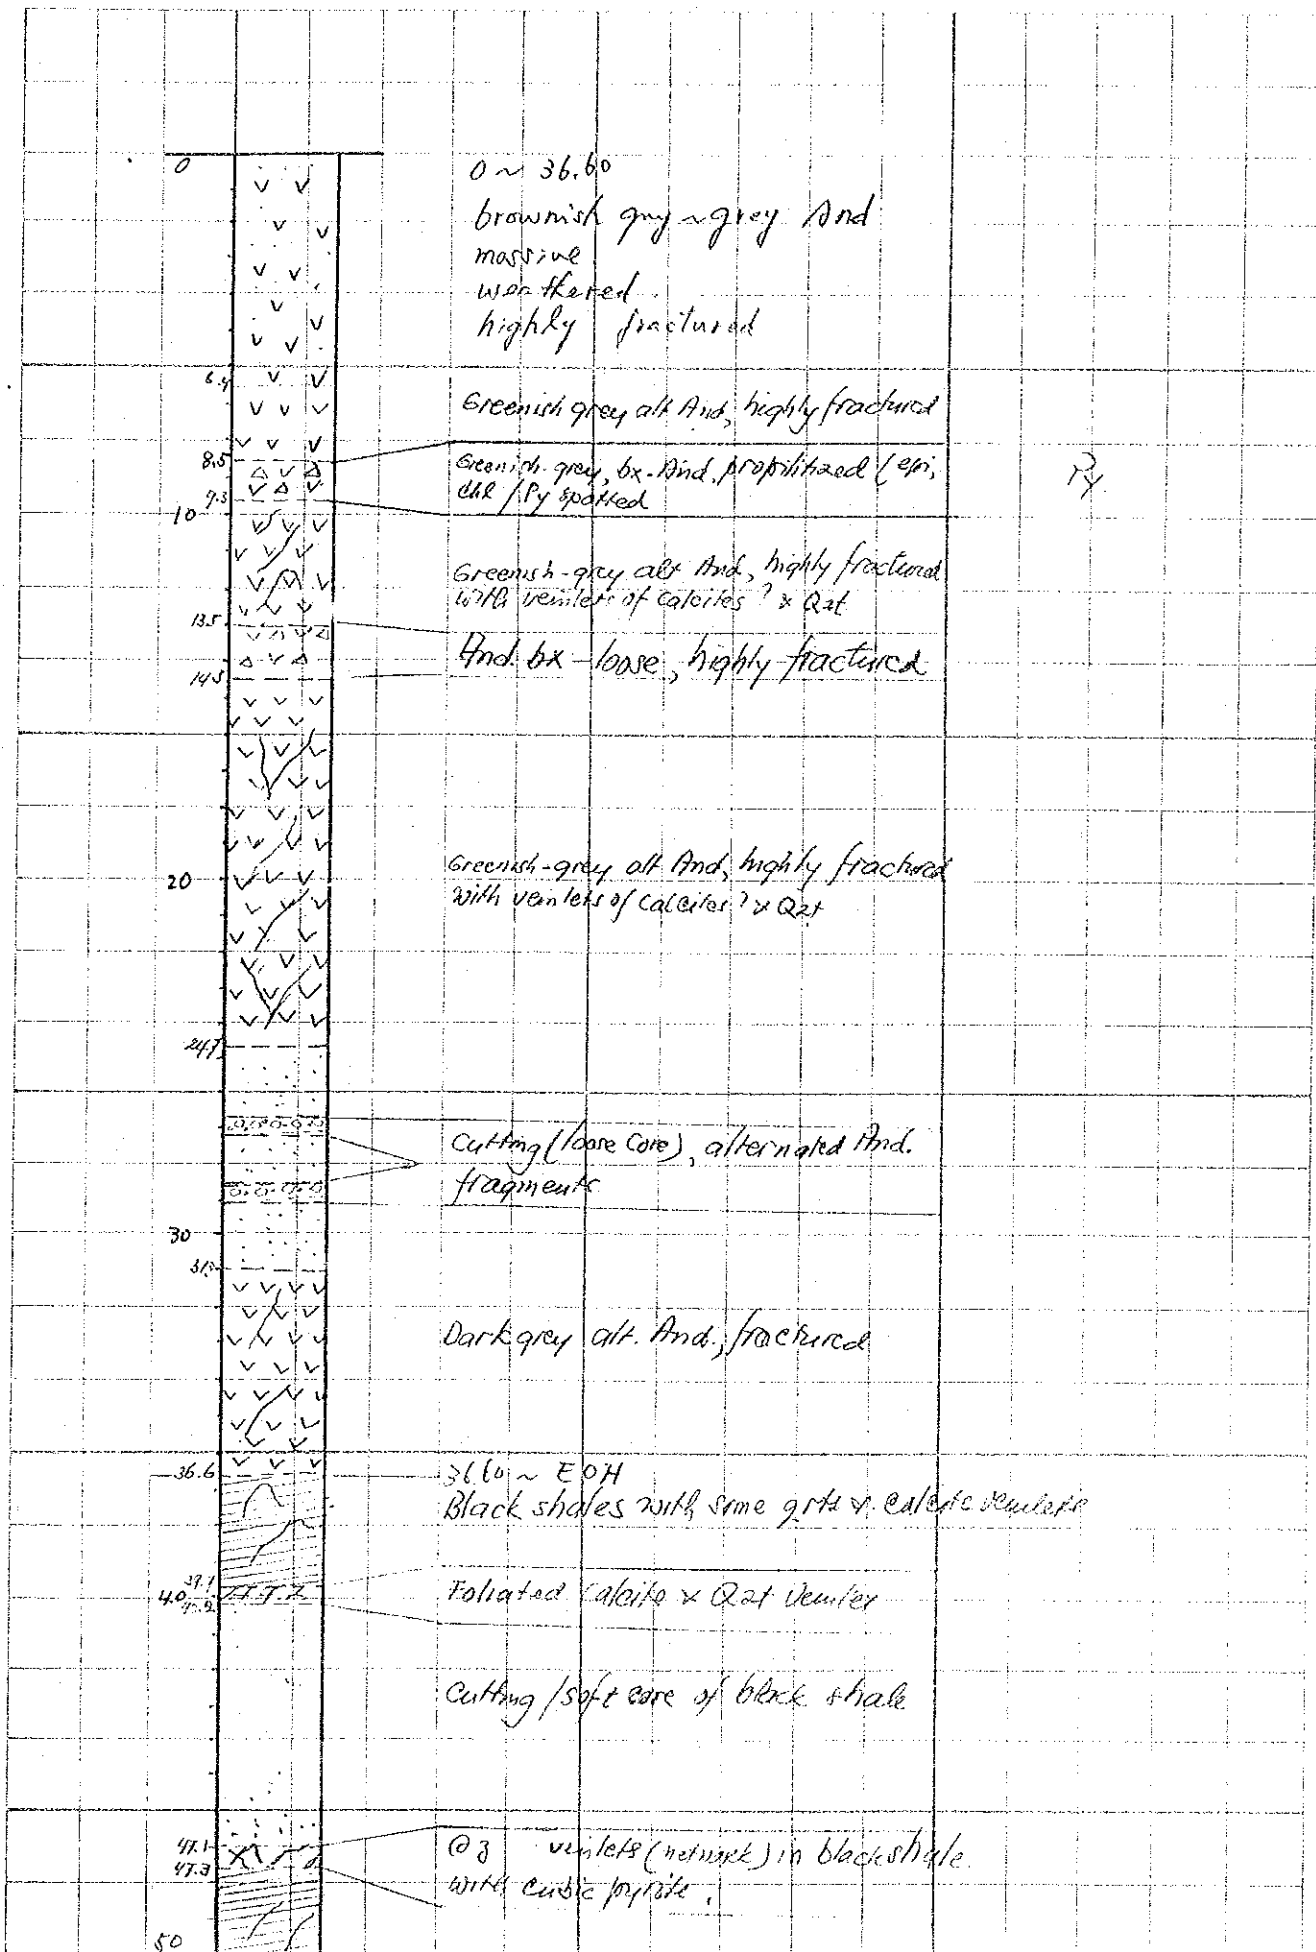 0
0 ~ 36.60
brownish grey ~ grey And
massive
weathered
highly fractured
6.4
Greenish grey alt And, highly fractured
8.5
Greenish-grey, bx-And, propilitized (epi,
chl / Py spotted
Py
9.3
10
Greenish-grey alt And, highly fractured
with veinlets of calcites? & Qzt
13.5
And. bx - loose, highly fractured
14.5
20
Greenish-grey alt And, highly fractured
with veinlets of calcites? & Qzt
24.7
Cutting (loose Core), alternated And.
fragments
30
Dark grey alt. And., fractured
36.6
36.60 ~ EOH
Black shales with some & calcite veinlets
39.7
40
Foliated Calcite & Qzt Veinlet
Cutting / soft core of black shale
47.1
47.3
veinlets (network) in black shale.
with cubic pyrite.
50